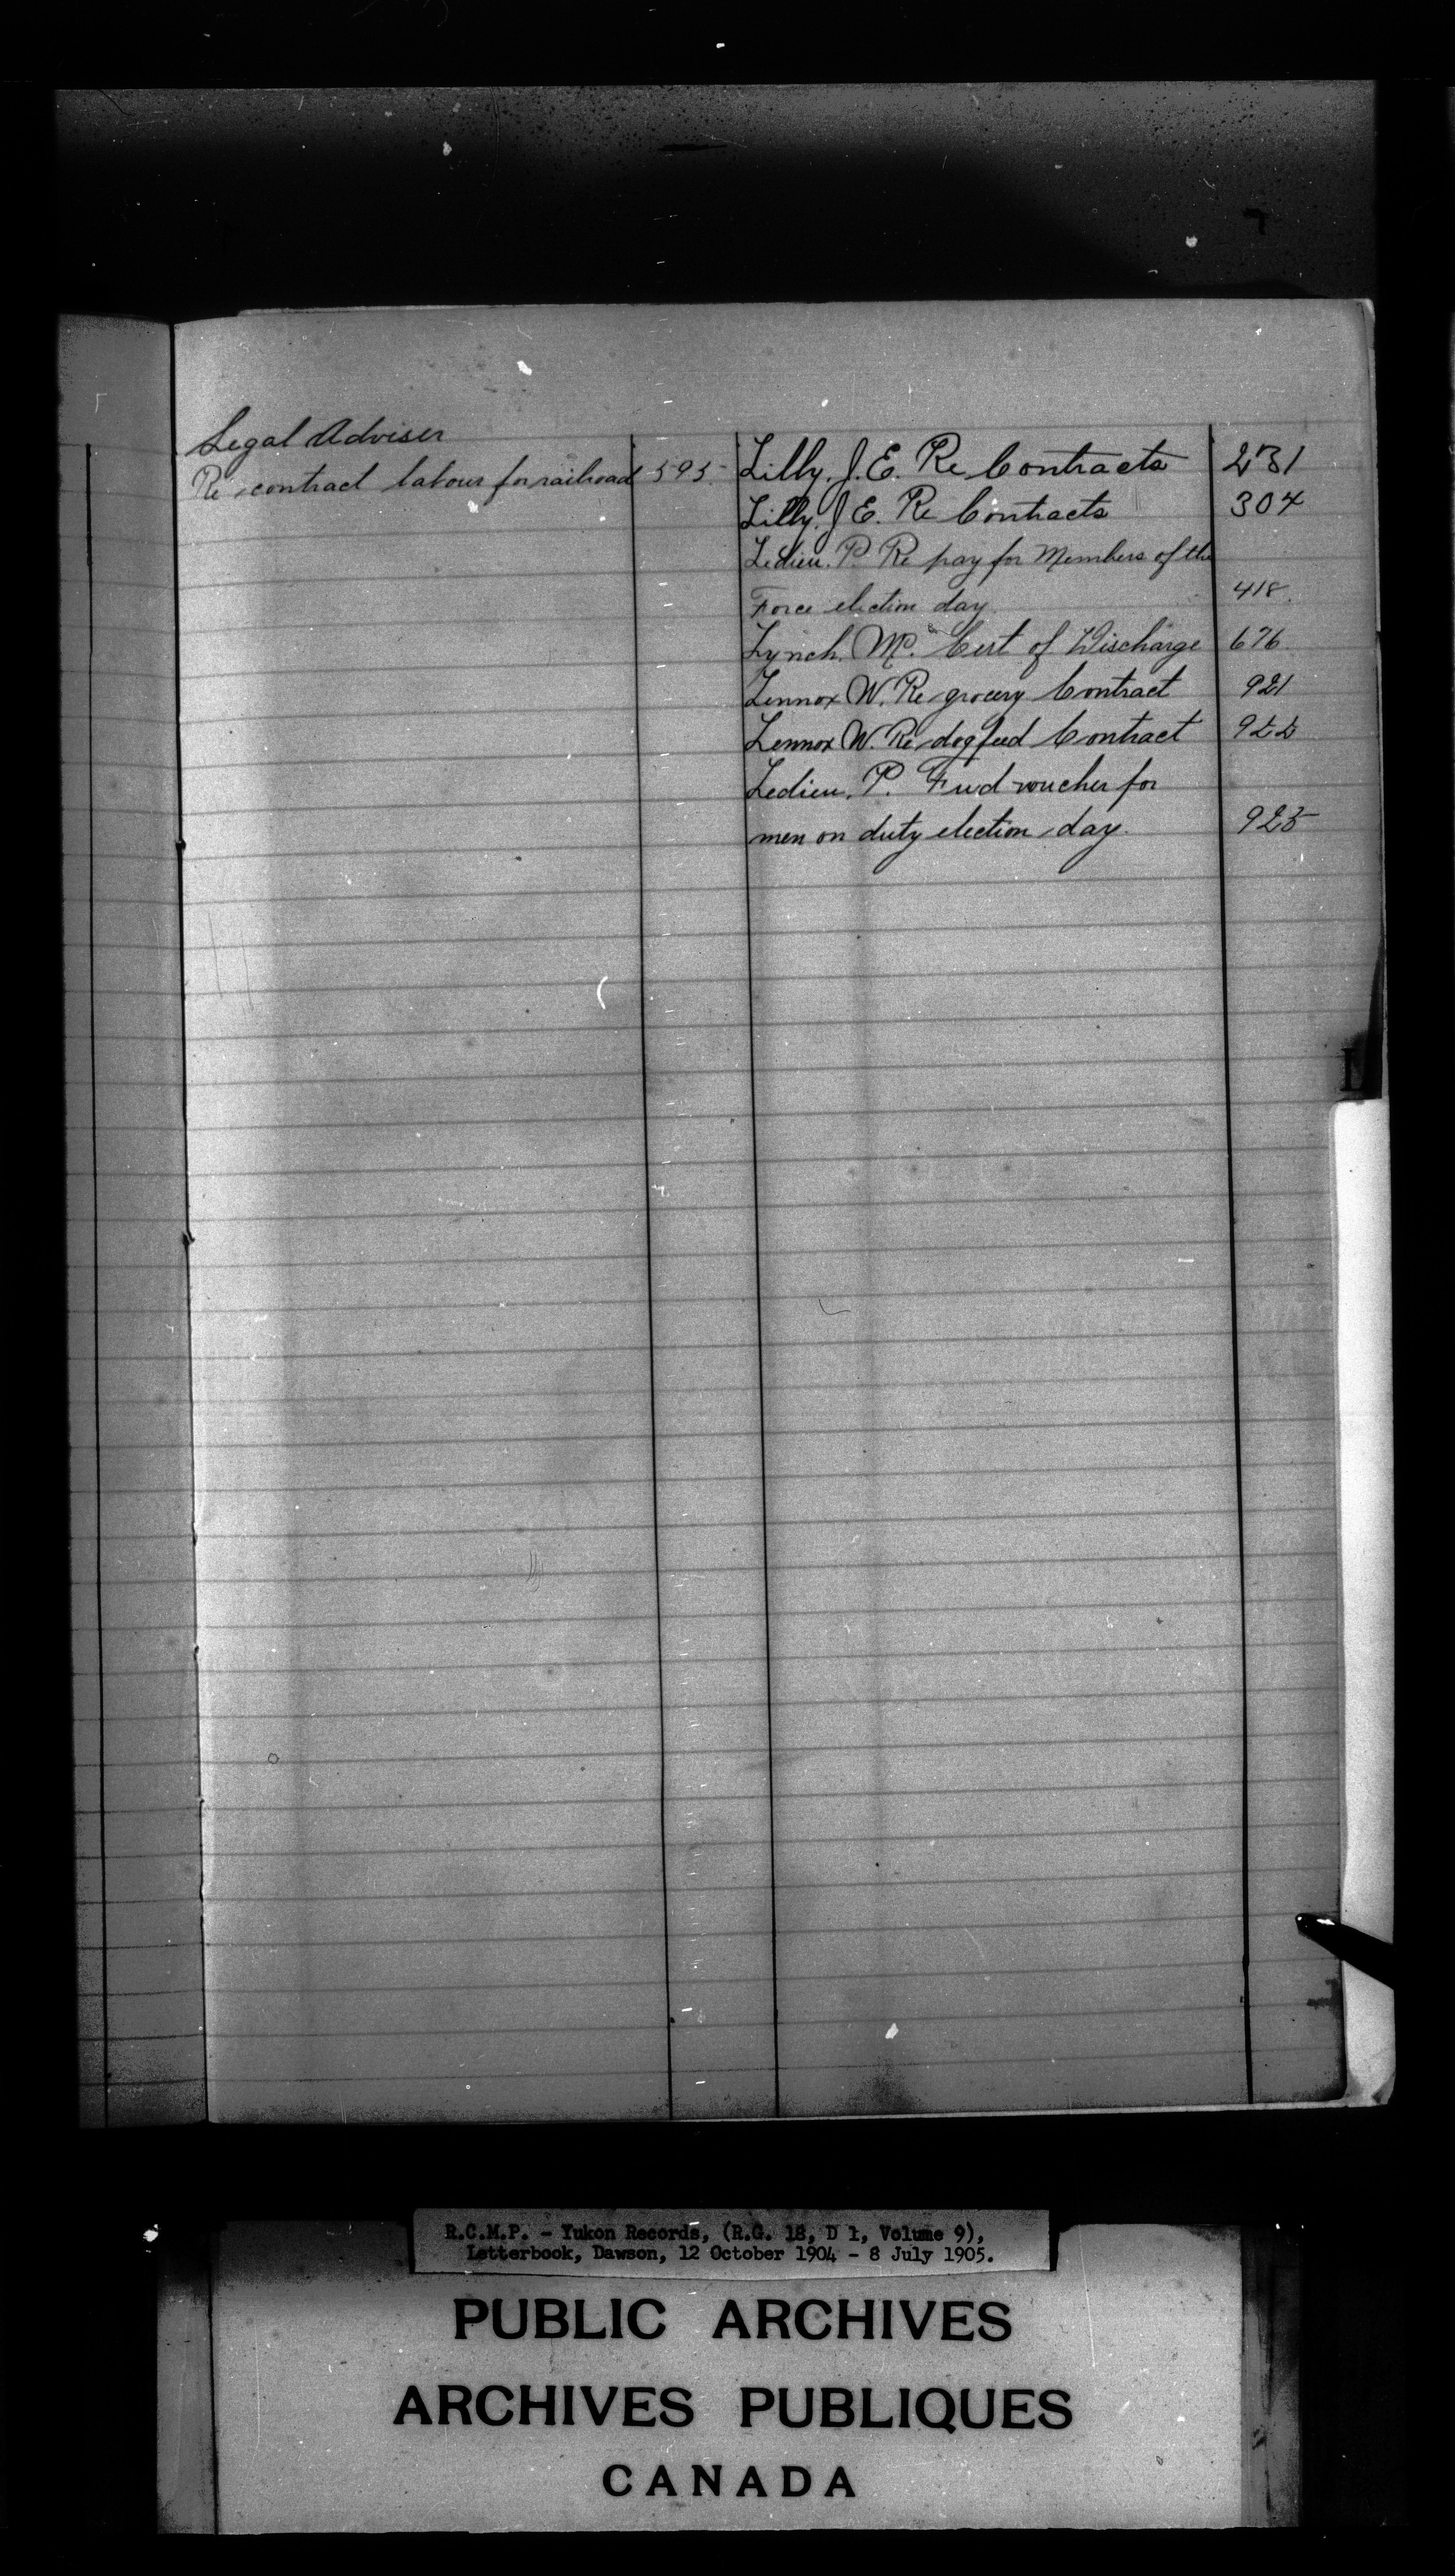 Legal Adviser
Re contract labour for railroad 595
Lilly, J. E. Re Contracts 231
Lilly, J E. Re Contracts 304
Ledieu, P. Re pay for Members of the
Force election day 418.
Lynch. Mc. Cert of Discharge 676.
Lennox W. Re grocery Contract 921
Lennox W. Re dogfeed Contract 922
Ledieu, P. voucher for
men on duty election day. 925
L
R.C.M.P. - Yukon Records, (R.G. 18, D 1, Volume 9),
Letterbook, Dawson, 12 October 1904 - 8 July 1905.
PUBLIC ARCHIVES
ARCHIVES PUBLIQUES
CANADA